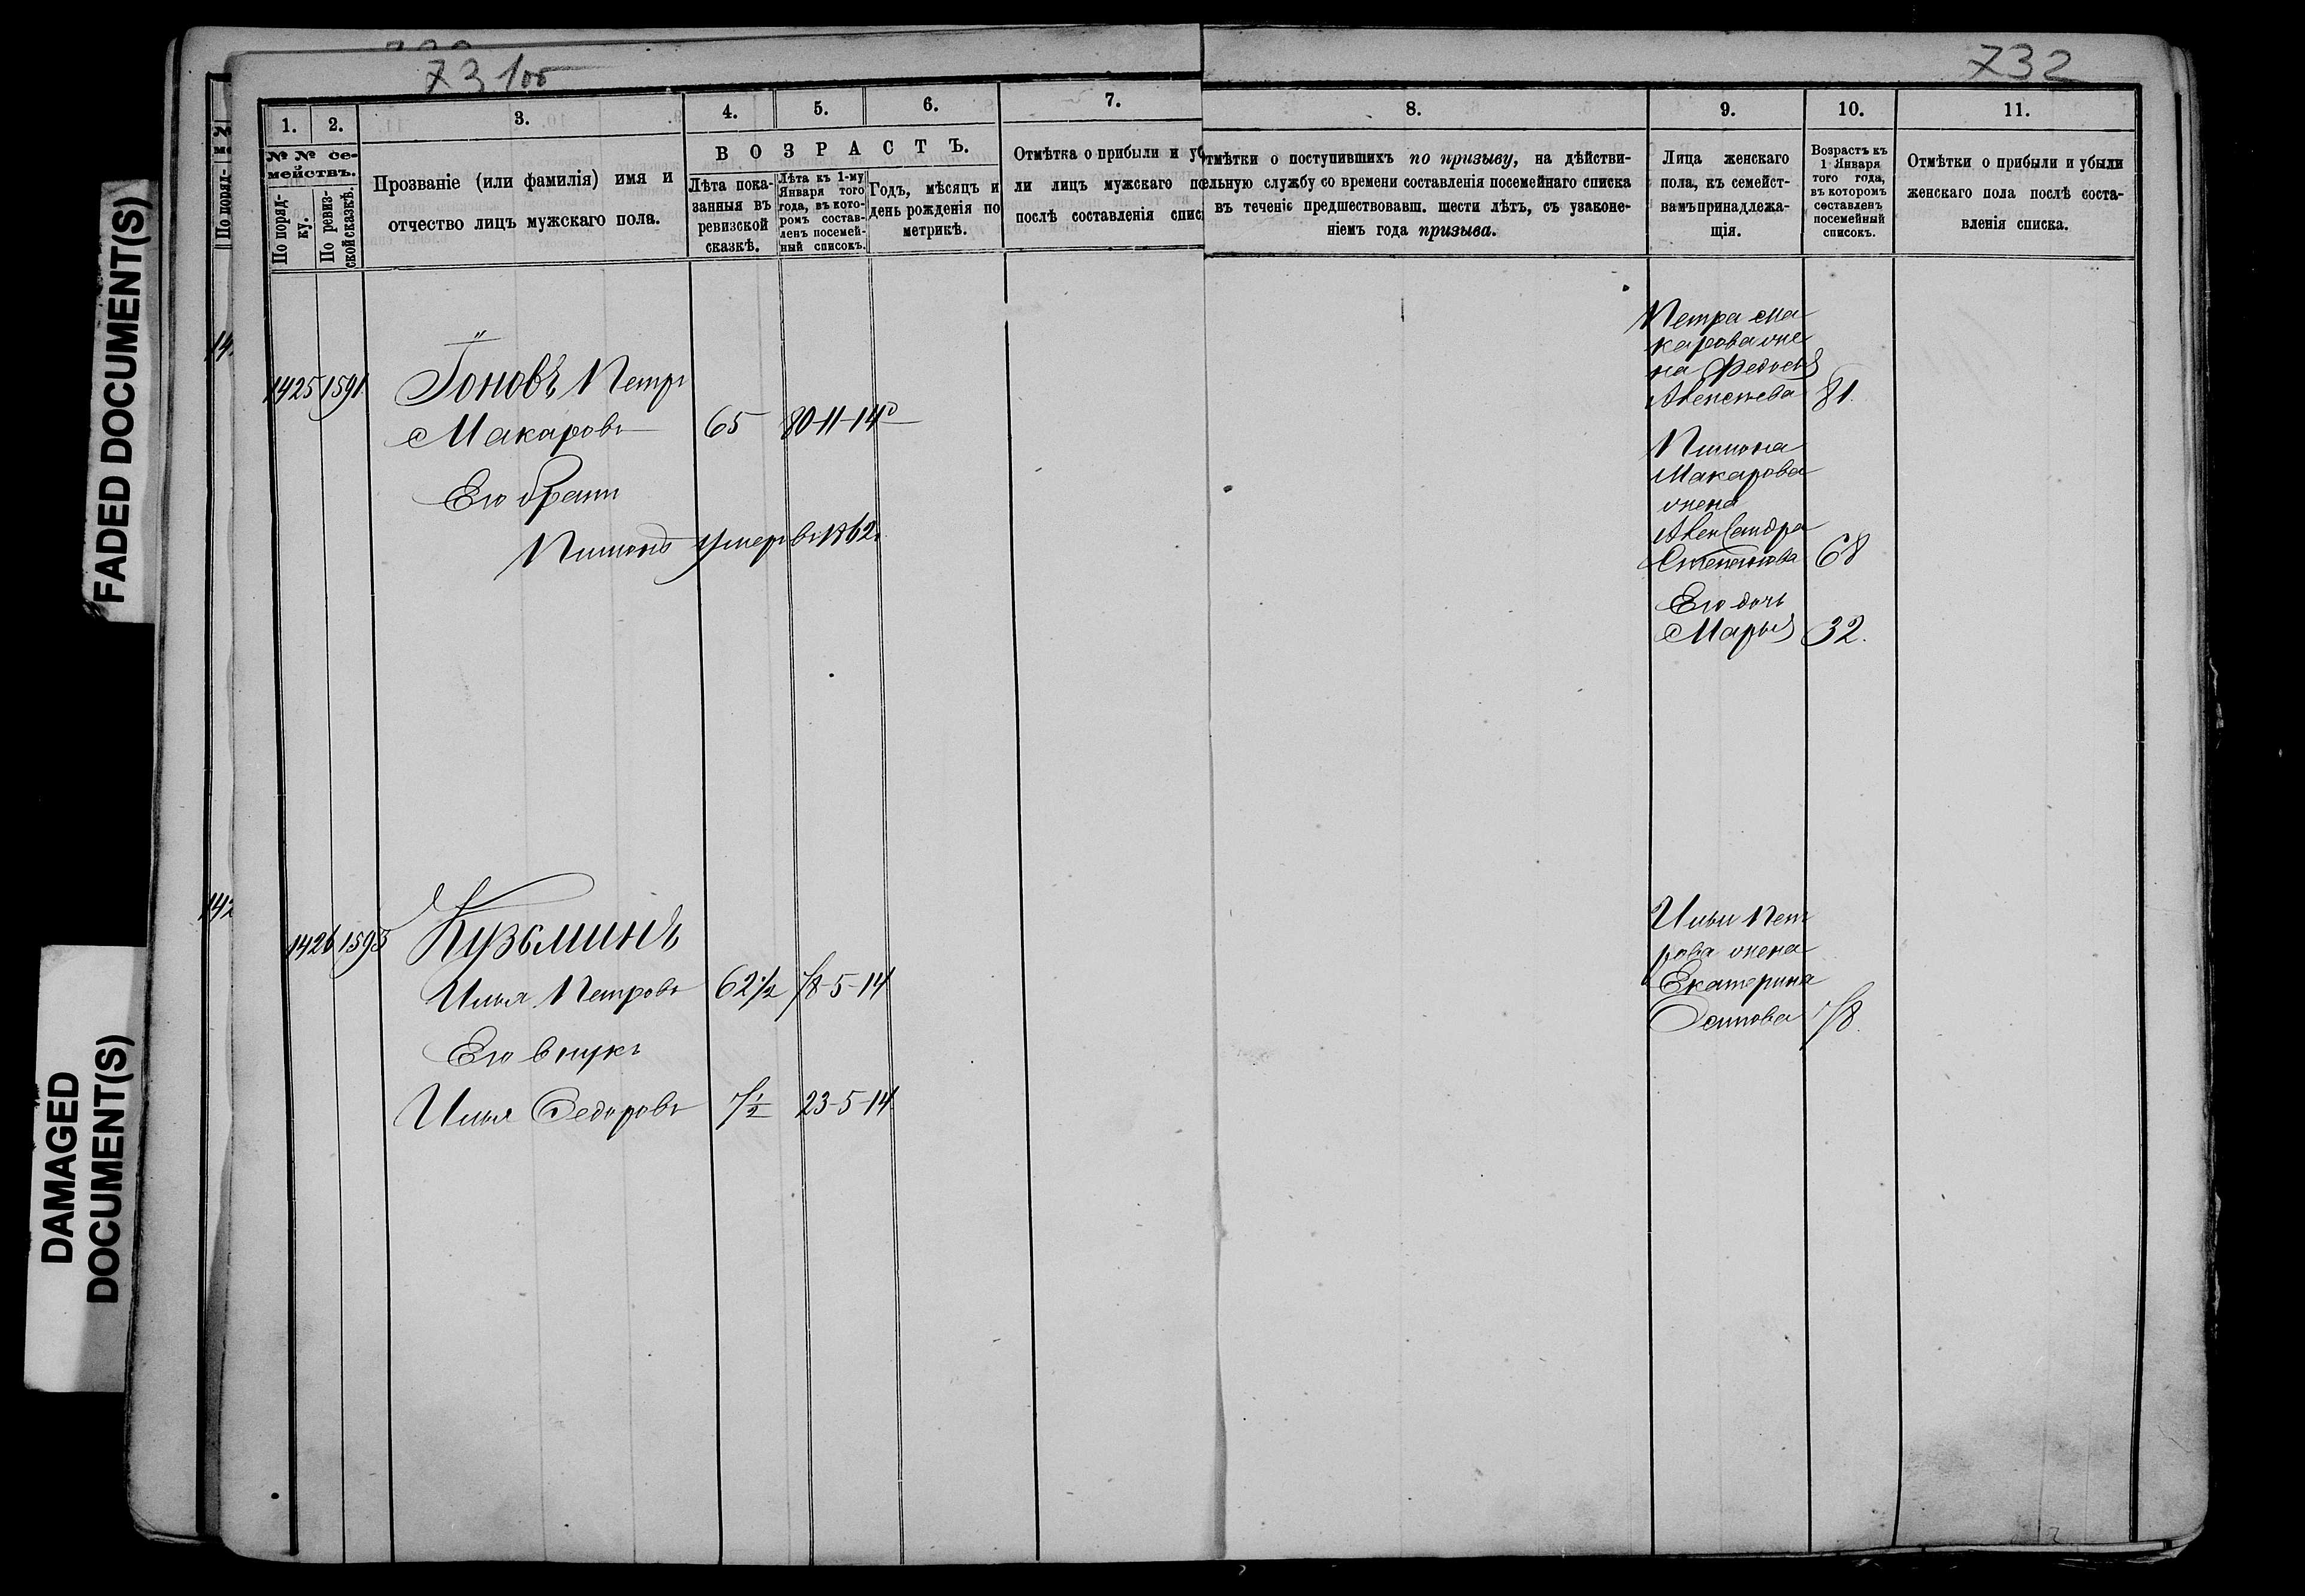 731 об
732
1.
2.
3.
4.
5.
6.
7.
8.
9.
10.
11.
№ № се-
мействъ.
По поряд-
ку.
По ревиз-
ской сказкѣ.
Прозваніе (или фамилія) имя и
отчество лицъ мужскаго пола.
ВОЗРАСТЪ.
Лѣта пока-
занныя въ
ревизской
сказкѣ.
Лѣта къ 1-му
Января того
года, въ кото-
ромъ состав-
ленъ посемей-
ный списокъ.
Годъ, мѣсяцъ и
день рожденія по
метрикѣ.
Отмѣтка о прибыли и уб
ли лицъ мужскаго по
послѣ составленія спис
тмѣтки о поступившихъ по призыву, на дѣйстви-
ельную службу со времени составленія посемейнаго списка
въ теченіе предшествовавш. шести лѣтъ, съ узаконе-
ніемъ года призыва.
Лица женскаго
пола, къ семейст-
вамъ принадлежа-
щія.
Возрастъ къ
1 Января
того года,
въ которомъ
составленъ
посемейный
списокъ.
Отмѣтки о прибыли и убыли
женскаго пола послѣ соста-
вленія списка.
1425 1591 Іоновъ Петръ
Макаровъ 65 80-11-14
Его братъ
Пименъ умеръ въ 1862.
Петра Ма
карова же
на Федосья
81.
Пимона
Макарова
жена
Александра
Степанова 68
Его дочь
Марья 32.
1426 1593 Кузьминъ
Илья Петровъ 62½ 78-5-14
Его внукъ
Илья Федоровъ 7½ 23-5-14
Ильи Пет
рова жена
Екатерина
Осипова 78.
FADED DOCUMENT(S)
DAMAGED
DOCUMENT(S)